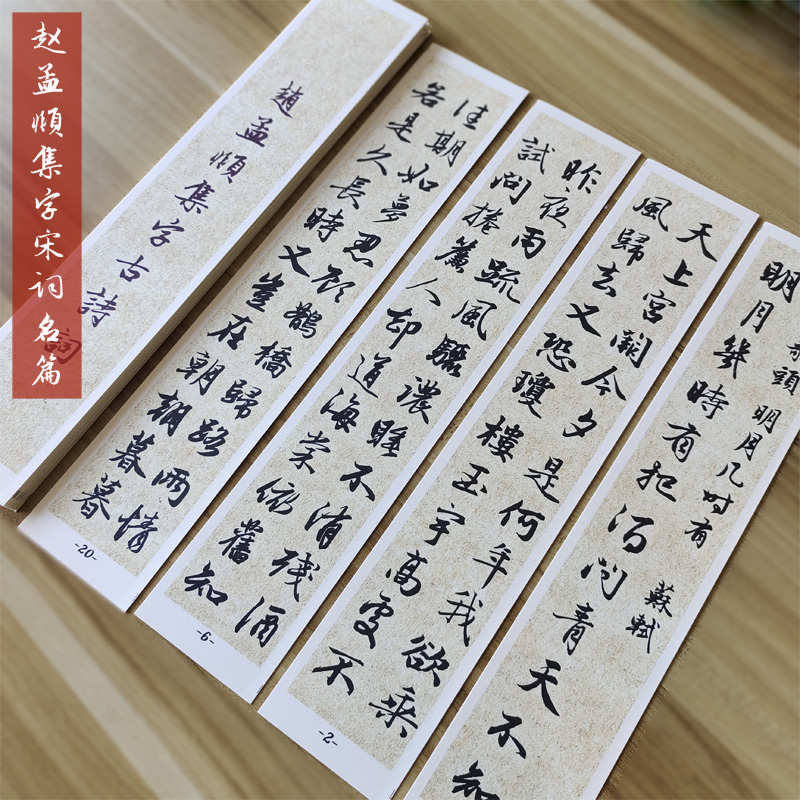 赵孟頫集字宋词名篇
趙孟頫集字古詩詞
頭 明月几时有 蘇軾
明月幾時有把酒问青天不知
天上宮闕今夕是何年我欲乘
風歸去又恐瓊樓玉宇高處不
-2-
昨夜雨疏風驟濃睡不消殘酒
試问捲簾人却道海棠依舊知
-6-
佳期如夢忍顾鵲橋歸路兩情
若是久長時又豈在朝朝暮暮
-20-